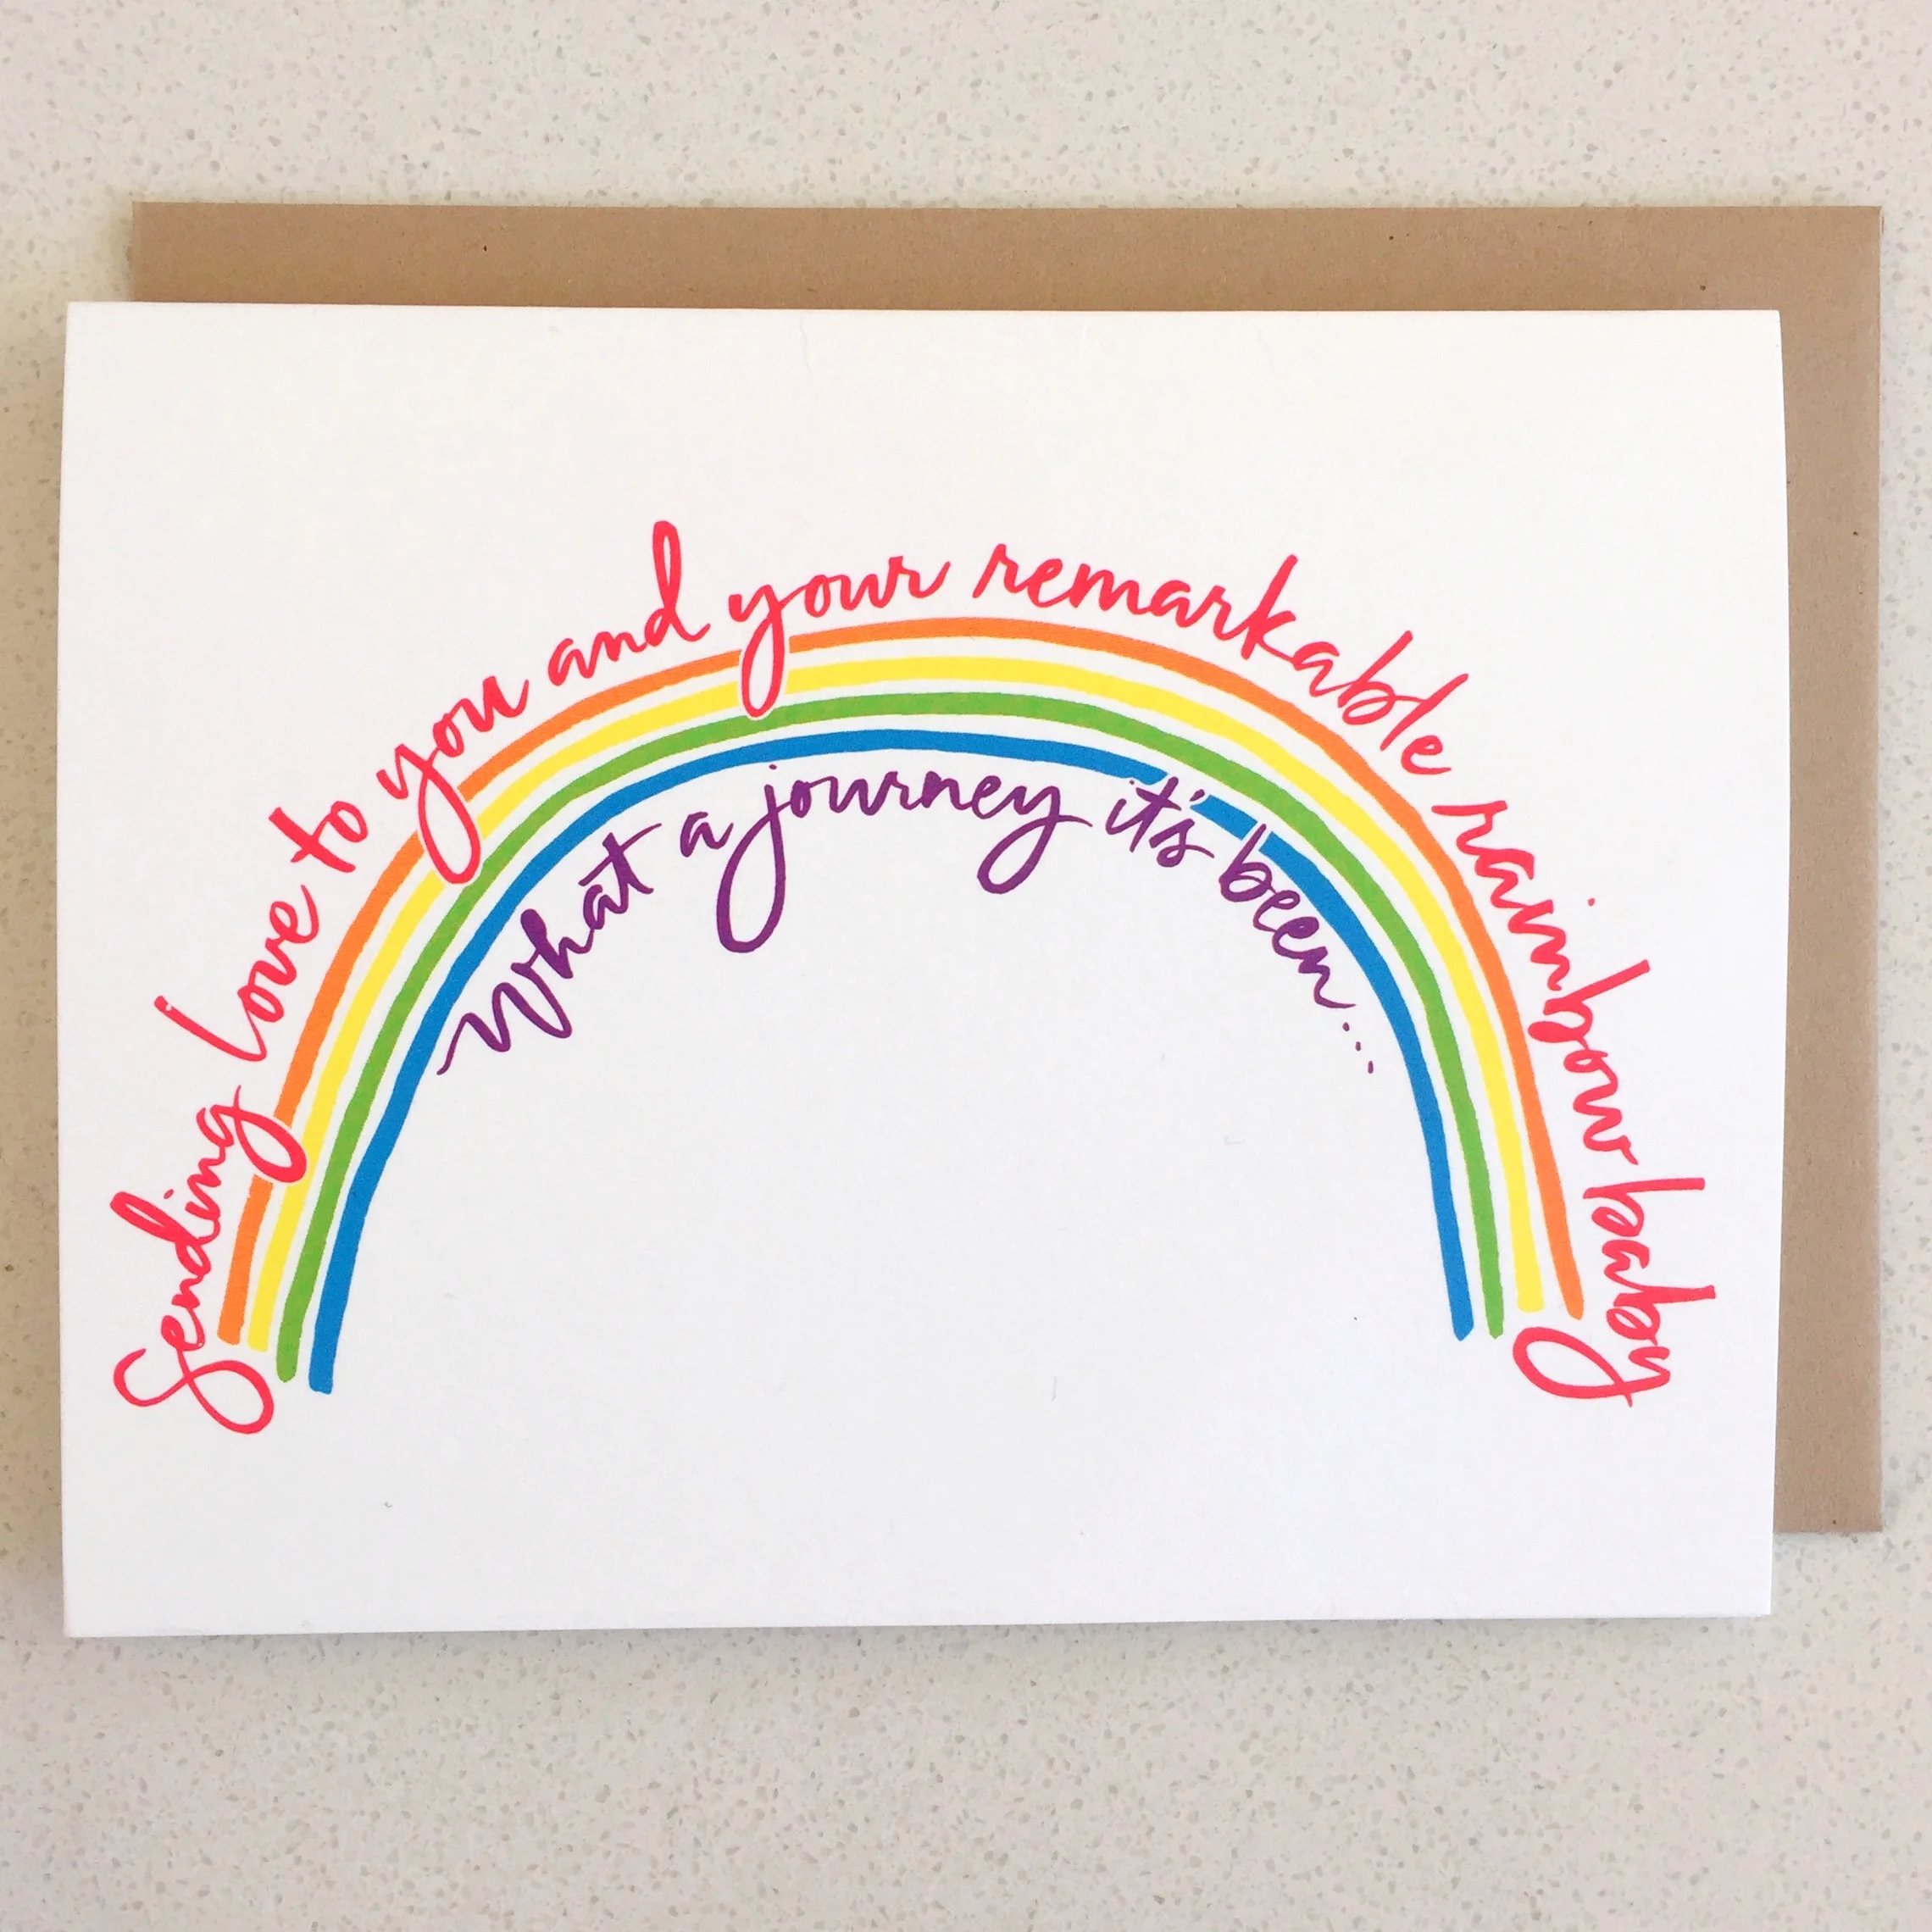 Sending love to you and your remarkable rainbow baby
What a journey it's been...